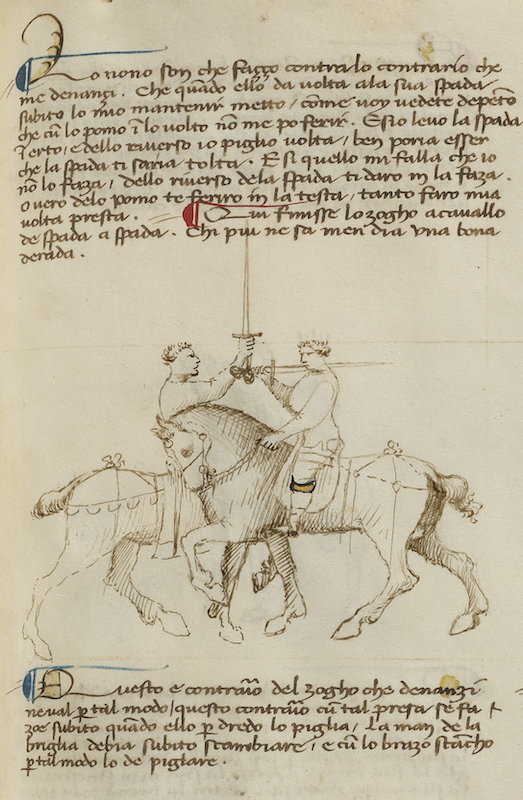 Io nono son che fazço contra lo contrario che
me denançi. Che quãdo ello da volta ala sua spada
subito lo mio mantenir metto / come voy vedete depento
che cũ lo pomo ĩ lo volto nõ me po ferir. E sio levo la spada
ĩ erto, e dello riverso io piglio volta, ben poria esser
che la spada ti saria tolta. E si quello mi falla che io
nõ lo faza, dello riverso dela spada ti daro in la faza.
Overo delo pomo te feriro in la testa, tanto faro mia
volta presta. Qui finisse lo zogho a cavallo
de spada a spada. Chi piu ne sa men dia una bona
derada.
Questo e contrario del zogho che denanzi
ne val p tal modo / questo contrario cũ tal presa se fa
zoe subito quãdo ello p dredo lo piglia, La man de la
briglia debia subito scambiare, e cũ lo brazo stãcho
p tal modo lo de pigliare.